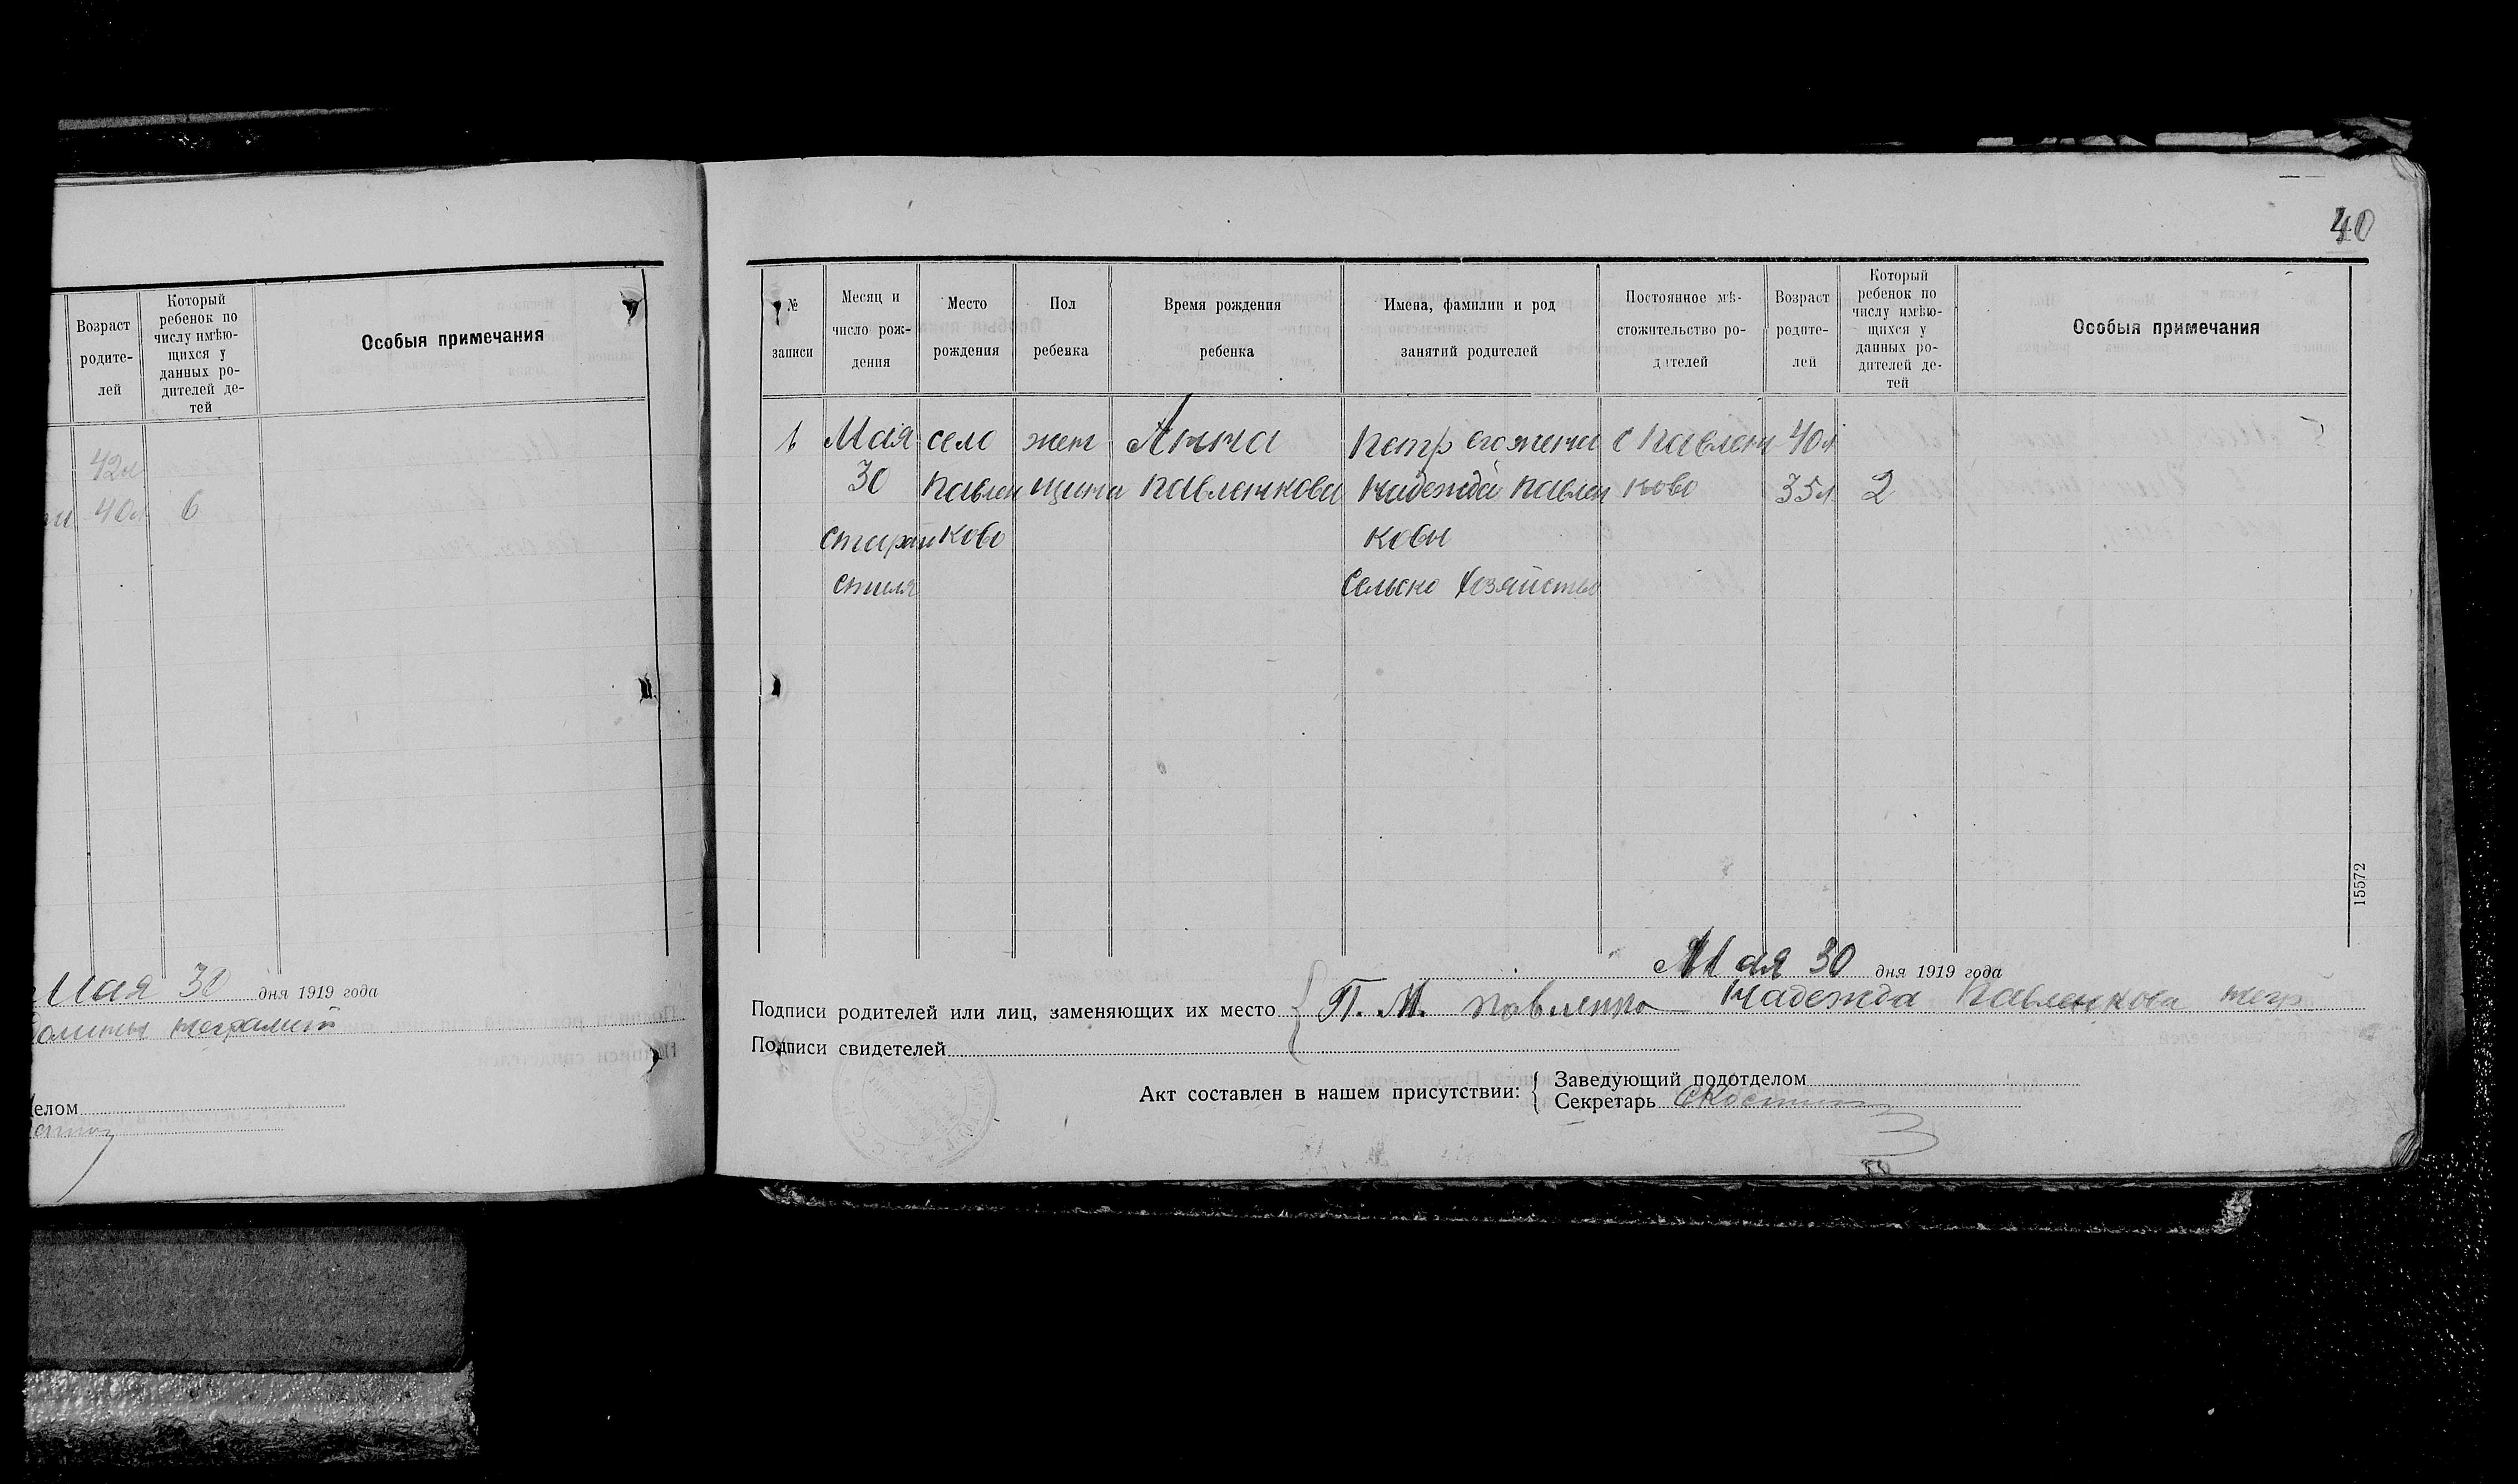 40
Возраст родите- лей
Который ребенок по числу имѣю- щихся у данных ро- дителей де- тей
Особыя примечания
42л
40л 6
Мая 30 дня 1919 года
неграмот
елом
№ записи
Месяц и число рож- дения
Место рождения
Пол ребенка
Время рождения ребенка
Имена, фамилии и род занятий родителей
Постоянное мѣ- стожительство ро- дителей
Возраст родите- лей
Который ребенок по числу имѣю- щихся у данных ро- дителей де- тей
Особыя примечания
1 Мая село жен Анна Петр его жена с Павлен 40л
30 Павлен щина Павленкова Надежда Павлен ково 35л 2
Стараго ково ковы
стиля Сельско Хозяйство
15572
Мая 30 дня 1919 года
Подписи родителей или лиц, заменяющих их место П. М. Павленко Надежда Павленкова негр
Подписи свидетелей
Акт составлен в нашем присутствии: Заведующий подотделом
Секретарь СКостин